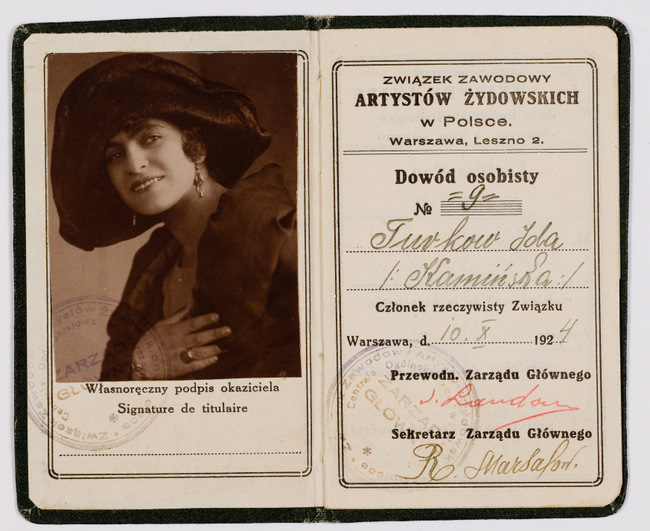 Własnoręczny podpis okaziciela
Signature de titulaire
ZWIĄZEK ZAWODOWY
ARTYSTÓW ŻYDOWSKICH
w Polsce.
Warszawa, Leszno 2.
Dowód osobisty
№ =9=
Turkow Ida
/: Kamińska :/
Członek rzeczywisty Związku
Warszawa, d. 10. X 1924
Przewodn. Zarządu Głównego
Sekretarz Zarządu Głównego
R.
ZARZĄD
GŁÓWNY